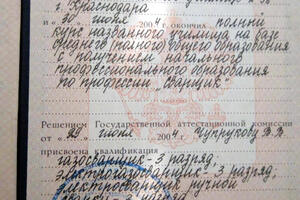 г. Краснодара
и «30» июля 2004 г. окончил полный
курс названного училища на базе
среднего (полного) общего образования
с получением начального
профессионального образования
по профессии „сварщик"
Решением Государственной аттестационной комиссии
от « 29 » июля 2004 г.
присвоена квалификация
газосварщик - 3 разряд,
электрогазосварщик - 3 разряд,
электросварщик ручной
сварки - 3 разряд